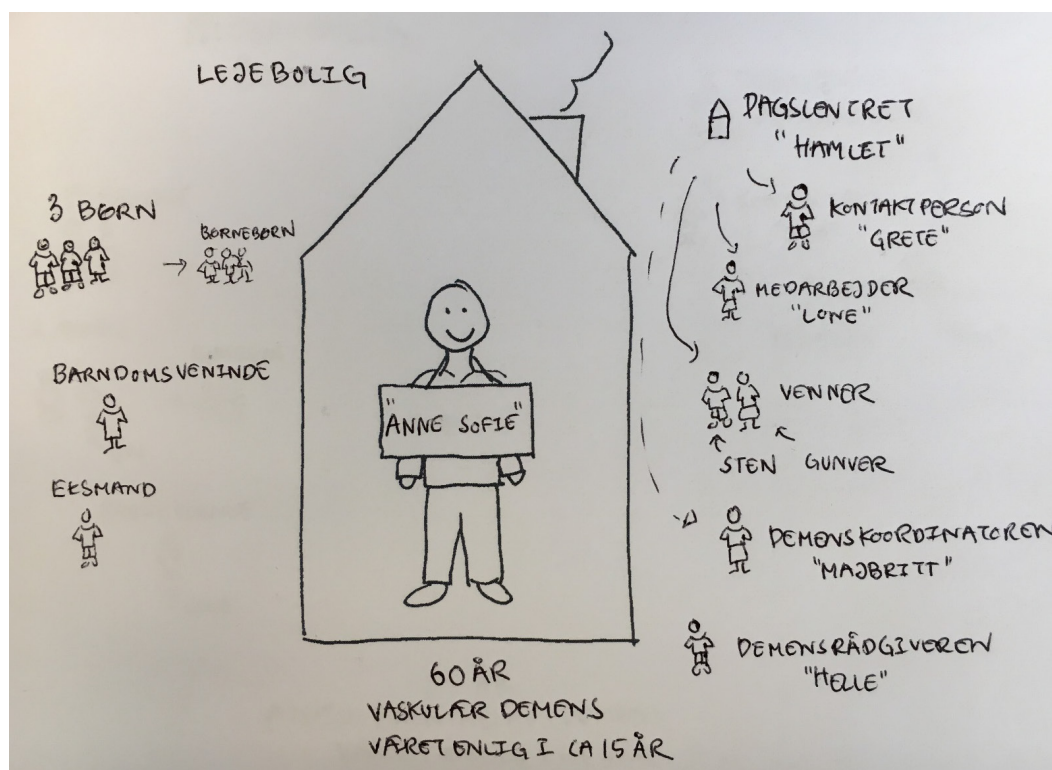 LEJEBOLIG
3 BØRN
BØRNEBØRN
BARNDOMSVENINDE
EKSMAND
"ANNE SOFIE"
60 ÅR
VASKULÆR DEMENS
VÆRET ENLIG I CA 15 ÅR
DAGSCENTRET
"HAMLET"
KONTAKTPERSON
"GRETE"
MEDARBEJDER
"LONE"
VENNER
STEN GUNVER
DEMENSKOORDINATOREN
"MAJBRITT"
DEMENSRÅDGIVEREN
"HELLE"